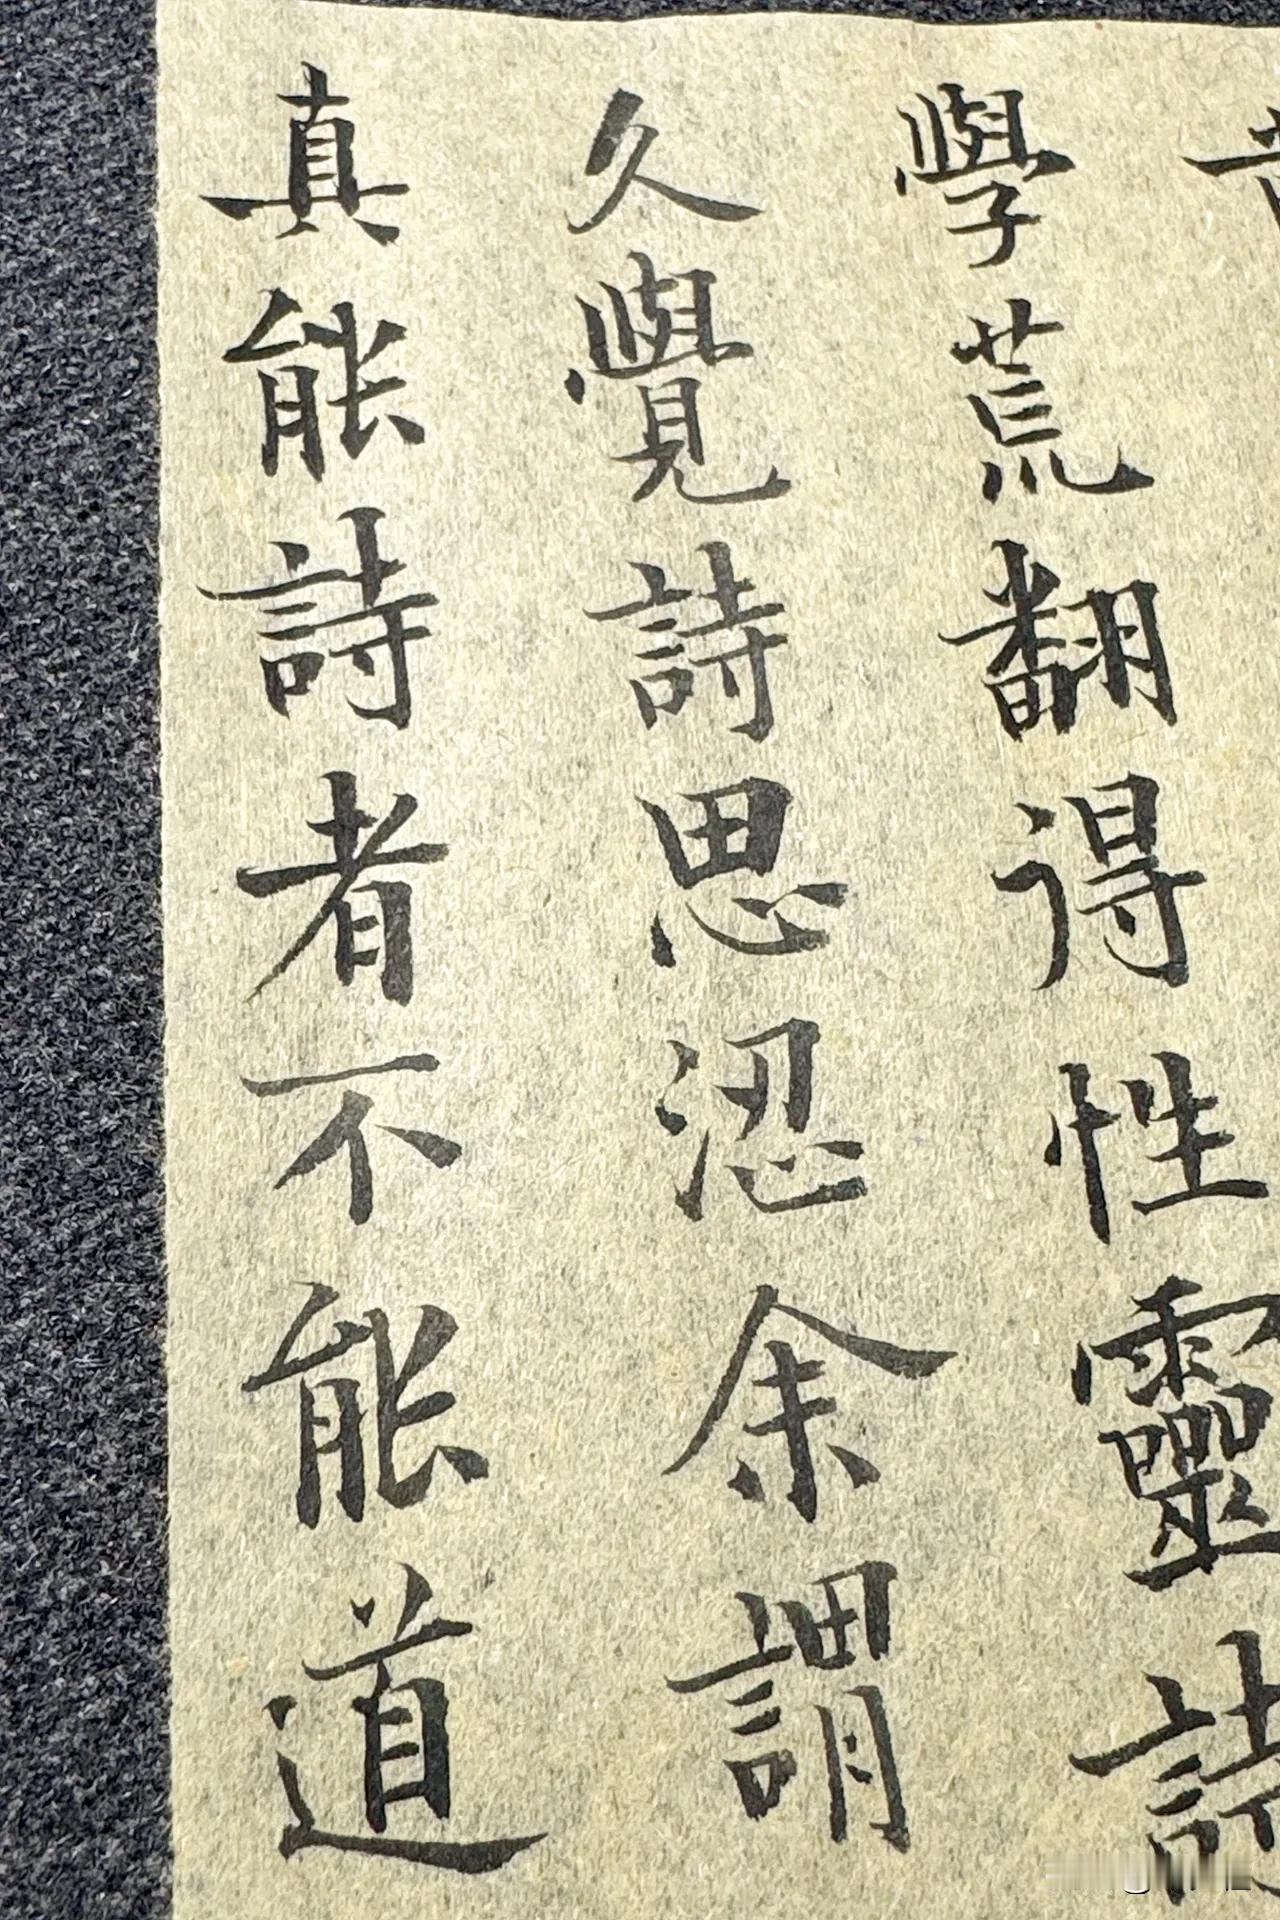 學荒翻得性靈詩
久覺詩思涩余謂
真能詩者不能道